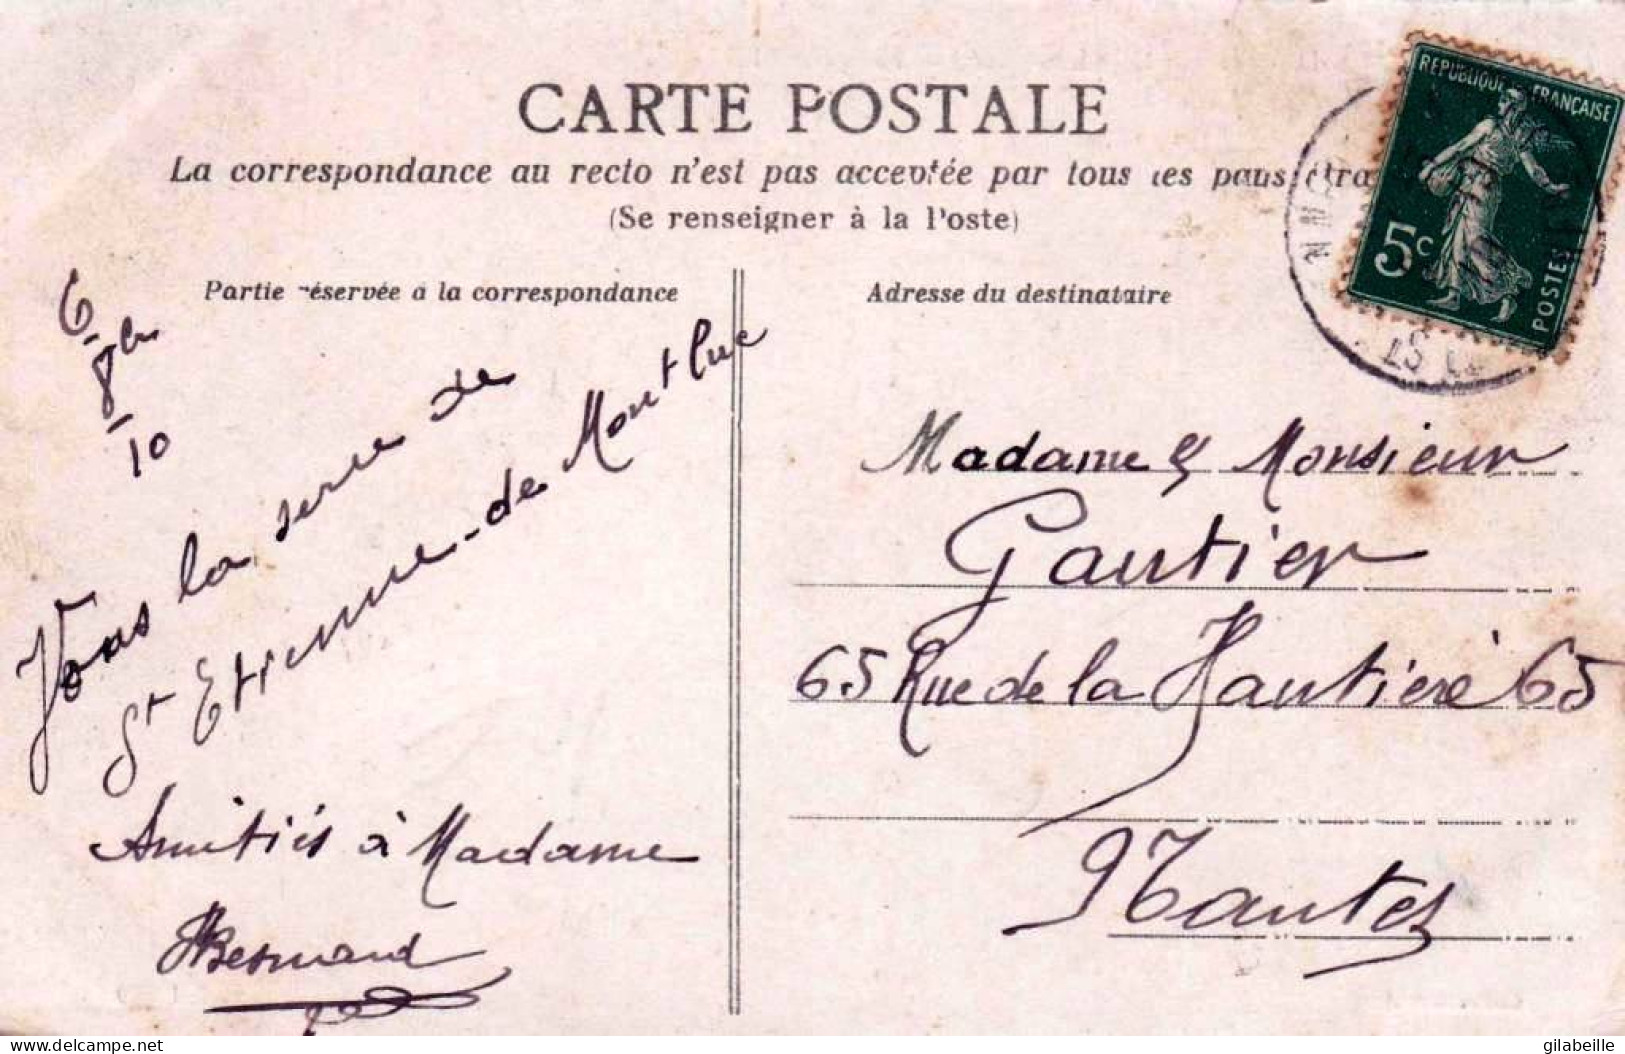 CARTE POSTALE
La correspondance au recto n'est pas acceptée par tous les pays étra
(Se renseigner à la Poste)
REPUBLIQUE FRANÇAISE
5c
POSTES
Partie réservée à la correspondance
Adresse du destinataire
6
8bre
10
Vous la serre de
St Etienne-de Montluc
Amitiés à Madame
HBesnard
Madame & Monsieur
Gautier
65 Rue de la Hautière 65
Nantes
delcampe.net
gilabeille